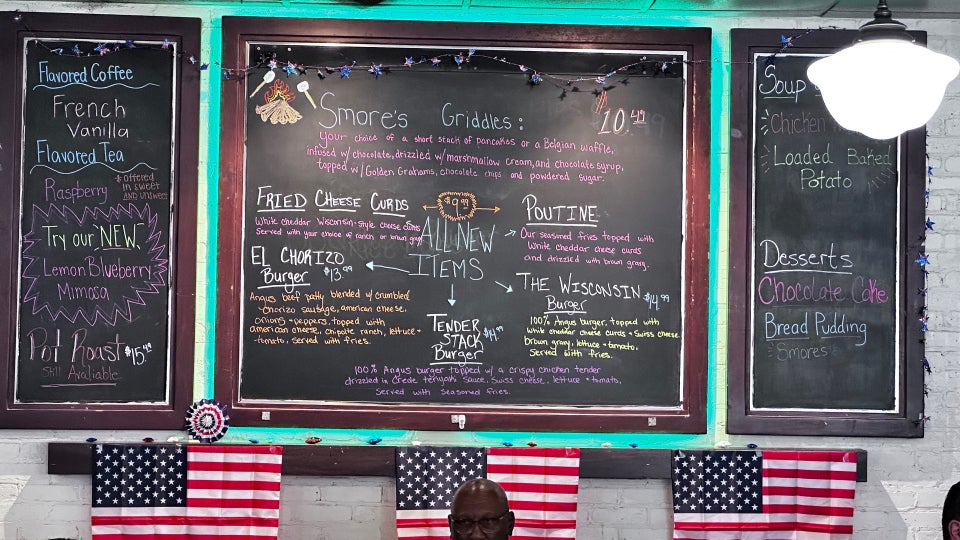 Flavored Coffee
French
Vanilla
Flavored Tea
Raspberry
*offered
in sweet
and unsweet
Try our "NEW"
Lemon Blueberry
Mimosa
Pot Roast $15.49
Still Available
Smore's Griddles:
10.49
Your choice of a short stack of pancakes or a Belgian waffle,
infused w/ chocolate, drizzled w/ marshmallow cream, and chocolate syrup,
topped w/ Golden Grahams, chocolate chips and powdered sugar.
Fried Cheese Curds
White cheddar Wisconsin-style cheese curds
Served with your choice of ranch or brown gravy
$9.99
ALL NEW
ITEMS
Poutine
Our seasoned fries topped with
white cheddar cheese curds
and drizzled with brown gravy.
EL CHORIZO
Burger $13.99
Angus beef patty blended w/ crumbled
chorizo sausage, american cheese,
onions + peppers, topped with
american cheese, chipotle ranch, lettuce +
tomato, served with fries.
THE WISCONSIN
Burger
$14.99
100% Angus burger, topped with
white cheddar cheese curds + Swiss cheese
brown gravy, lettuce + tomato.
Served with fries.
TENDER
STACK
Burger
100% Angus burger topped w/ a crispy chicken tender
drizzled in Crede teriyaki sauce, Swiss cheese, lettuce + tomato,
Served with seasoned fries.
Soup
Chicken
Loaded Baked
Potato
Desserts
Chocolate Cake
Bread Pudding
Smores